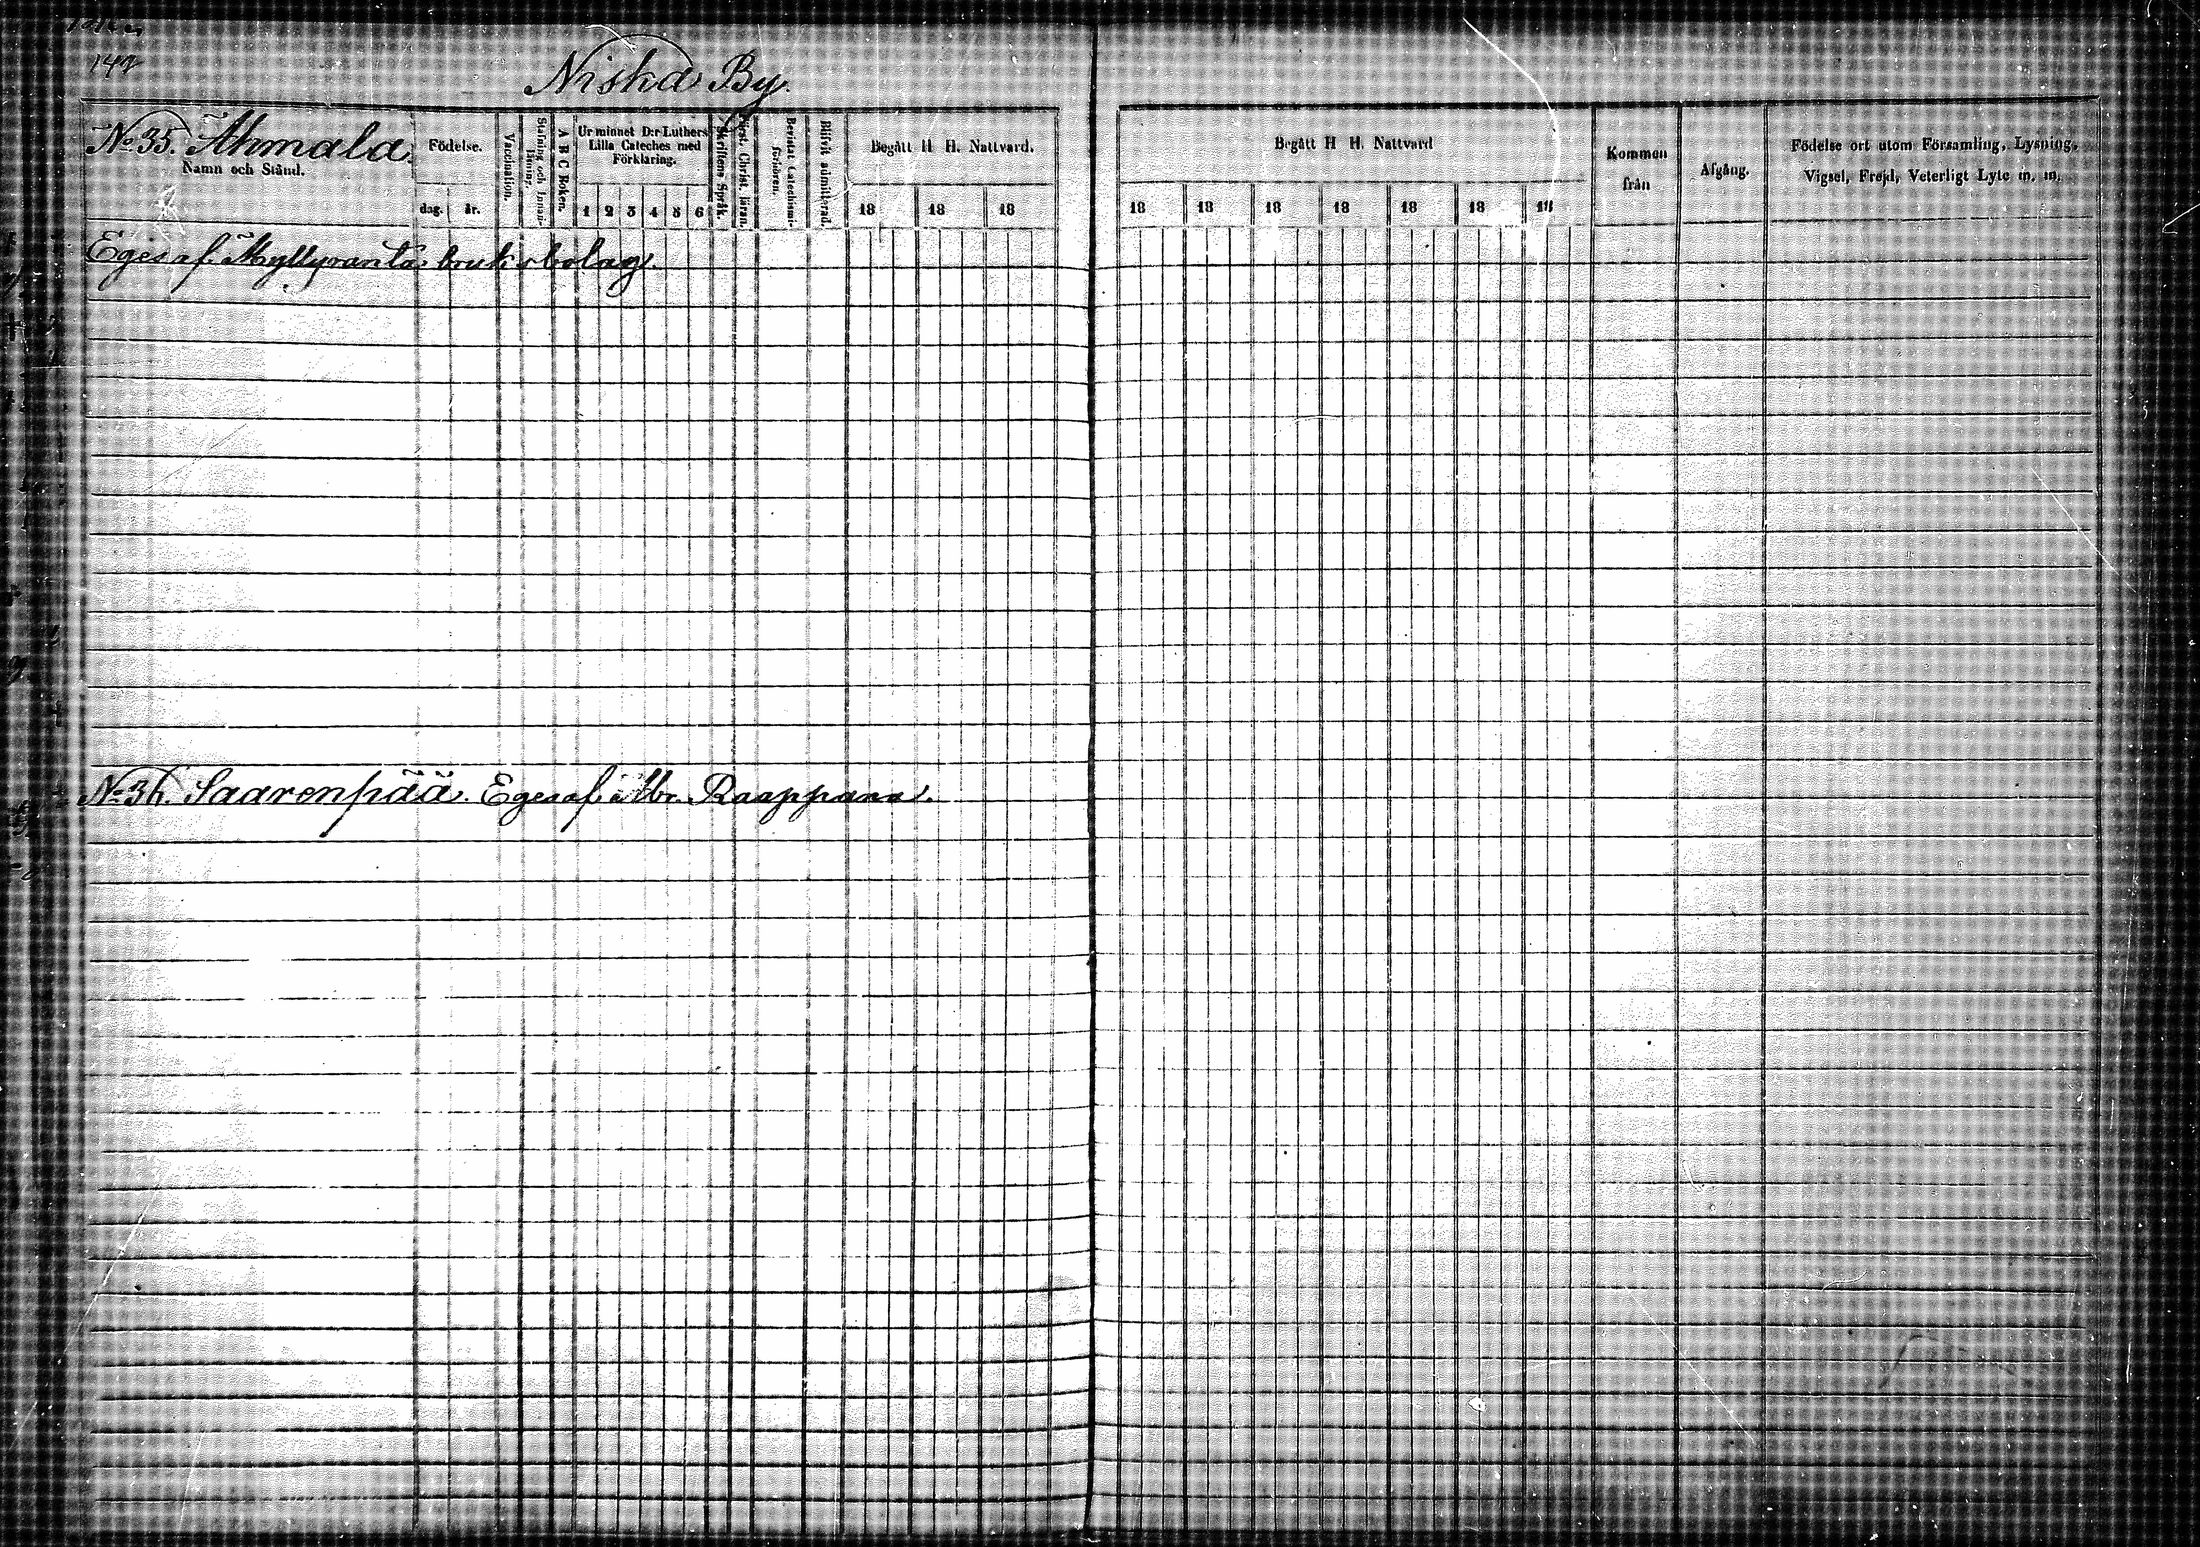 Niska By.
No 35. Ahmala.
Namn och Stånd.
Födelse.
dag. år.
Vaccination.
Stafning och Innanläsning.
A B C Boken.
Ur minnet D:r Luthers
Lilla Cateches med
Förklaring.
1 2 3 4 5 6
Skriftens Språk.
Först. Christ. läran.
Bevistat Catechismiförhören.
Blifvit admitterad.
Begått H H. Nattvard.
18 18 18
Begått H H. Nattvard
18 18 18 18 18 18 18
Kommen
från
Afgång.
Födelse ort utom Församling, Lysning,
Vigsel, Frejd, Veterligt Lyte m. m.
Eges af Myllyranta bruksbolag.
No 36. Saarenpää. Eges af Raappana.